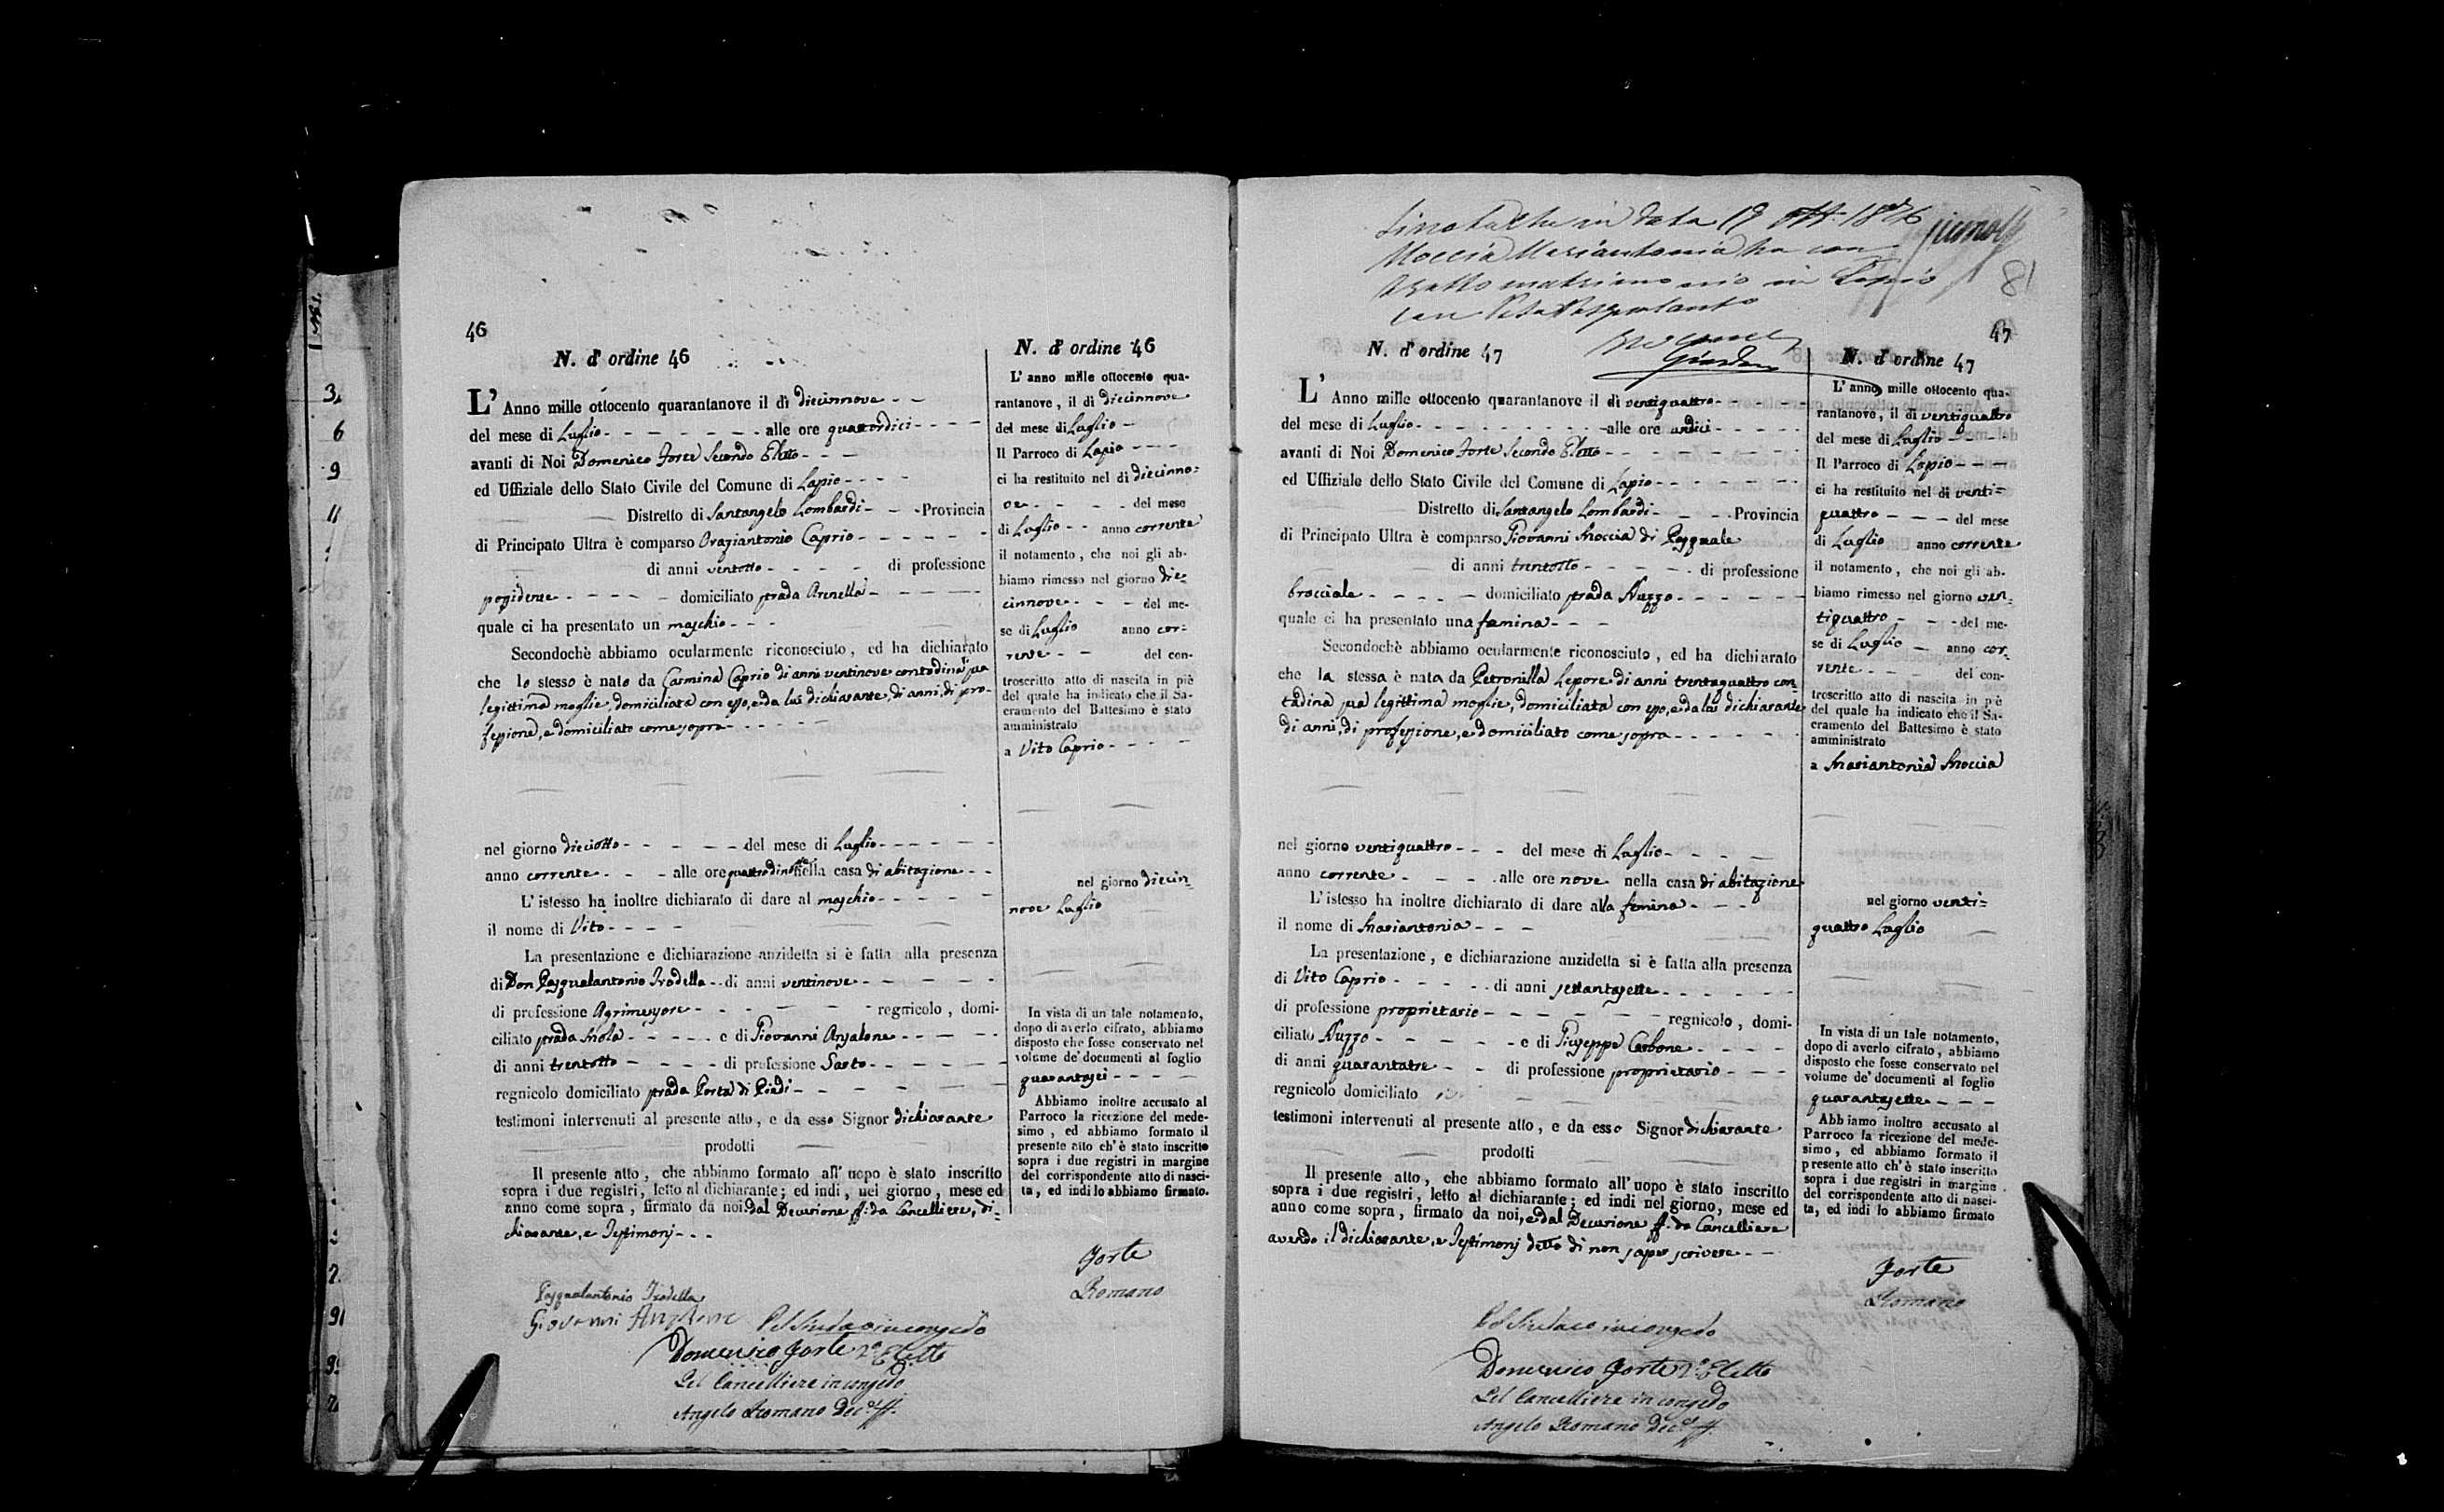 46
N. d' ordine 46
L' Anno mille ottocento quarantanove il dì diecinnove
del mese di Luglio alle ore quattordici
avanti di Noi Domenico Forte Secondo Eletto
ed Uffiziale dello Stato Civile del Comune di Lapio
Distretto di Santangelo Lombardi Provincia
di Principato Ultra è comparso Oraziantonio Caprio
di anni ventotto di professione
possidente domiciliato strada Arenella
quale ci ha presentato un maschio
Secondochè abbiamo ocularmente riconosciuto, ed ha dichiarato
che lo stesso è nato da Carmina Caprio di anni ventinove contadina sua
legittima moglie, domiciliata con esso, e da lui dichiarante, di anni, di pro-
fessione, e domiciliato come sopra
nel giorno dieciotto del mese di Luglio
anno corrente alle ore nella casa di abitazione
L' istesso ha inoltre dichiarato di dare al maschio
il nome di Vito
La presentazione e dichiarazione anzidetta si è fatta alla presenza
di Don Pasqualantonio Iradella di anni ventinove
di professione Agrimensore regnicolo, domi-
ciliato strada Mola e di Giovanni Anzalone
di anni trentotto di professione Sarto
regnicolo domiciliato strada Porta di Piedi
testimoni intervenuti al presente atto, e da esso Signor dichiarante
prodotti
Il presente atto, che abbiamo formato all' uopo è stato inscritto
sopra i due registri, letto al dichiarante; ed indi, nel giorno, mese ed
anno come sopra, firmato da noi dal Decurione ff: da Cancelliere, di-
chiarante, e Testimonj
Pasqualantonio Iradella
Giovanni Anzalone
Pel Sindaco in congedo
Domenico Forte 2º Eletto
Pel Cancelliere in congedo
Angelo Romano Dec.e ff.
N. d' ordine 46
L' anno mille ottocento qua-
rantanove, il dì diecinnove
del mese di Luglio
Il Parroco di Lapio
ci ha restituito nel dì diecinno=
ve del mese
di Luglio anno corrente
il notamento, che noi gli ab-
biamo rimesso nel giorno die-
cinnove del me-
se di Luglio anno cor=
rente del con-
troscritto atto di nascita in piè
del quale ha indicato che il Sa-
cramento del Battesimo è stato
amministrato
a Vito Caprio
nel giorno diecin-
nove Luglio
In vista di un tale notamento,
dopo di averlo cifrato, abbiamo
disposto che fosse conservato nel
volume de' documenti al foglio
quarantasei
Abbiamo inoltre accusato al
Parroco la ricezione del mede-
simo, ed abbiamo formato il
presente atto ch' è stato inscritto
sopra i due registri in margine
del corrispondente atto di nasci-
ta, ed indi lo abbiamo firmato.
Forte
Romano
Si nota che in data 19 1876
Moccia Mariantonia ha con
tratto matrimonio in Lapio
con
81
47
N. d' ordine 47
L' Anno mille ottocento quarantanove il dì ventiquattro
del mese di Luglio alle ore undici
avanti di Noi Domenico Forte Secondo Eletto
ed Uffiziale dello Stato Civile del Comune di Lapio
Distretto di Santangelo Lombardi Provincia
di Principato Ultra è comparso Giovanni Moccia di Pasquale
di anni trentotto di professione
bracciale domiciliato strada Nuzzo
quale ci ha presentato una femina
Secondochè abbiamo ocularmente riconosciuto, ed ha dichiarato
che la stessa è nata da Petronilla Lepore di anni trentaquattro con-
tadina sua legittima moglie, domiciliata con esso, e da lui dichiarante
di anni, di professione, e domiciliato come sopra
nel giorno ventiquattro del mese di Luglio
anno corrente alle ore nove nella casa di abitazione
L' istesso ha inoltre dichiarato di dare alla femina
il nome di Mariantonia
La presentazione, e dichiarazione anzidetta si è fatta alla presenza
di Vito Caprio di anni settantasette
di professione proprietario regnicolo, domi-
ciliato Nuzzo e di Giuseppe Carbone
di anni quarantatre di professione proprietario
regnicolo domiciliato
testimoni intervenuti al presente atto, e da esso Signor dichiarante
prodotti
Il presente atto, che abbiamo formato all' uopo è stato inscritto
sopra i due registri, letto al dichiarante; ed indi nel giorno, mese ed
anno come sopra, firmato da noi, e dal Decurione ff. da Cancelliere
avendo il dichiarante, e Testimonj detto di non saper scrivere
Pel Sindaco in congedo
Domenico Forte 2º Eletto
Pel Cancelliere in congedo
Angelo Romano Dec.e ff.
N. d' ordine 47
L' anno mille ottocento qua-
rantanove, il dì ventiquattro
del mese di Luglio
Il Parroco di Lapio
ci ha restituito nel dì venti=
quattro del mese
di Luglio anno corrente
il notamento, che noi gli ab-
biamo rimesso nel giorno ven=
tiquattro del me-
se di Luglio anno cor=
rente del con-
troscritto atto di nascita in piè
del quale ha indicato che il Sa-
cramento del Battesimo è stato
amministrato
a Mariantonia Moccia
nel giorno venti=
quattro Luglio
In vista di un tale notamento,
dopo di averlo cifrato, abbiamo
disposto che fosse conservato nel
volume de' documenti al foglio
quarantasette
Abbiamo inoltre accusato al
Parroco la ricezione del mede-
simo, ed abbiamo formato il
presente atto ch' è stato inscritto
sopra i due registri in margine
del corrispondente atto di nasci-
ta, ed indi lo abbiamo firmato
Forte
Romano